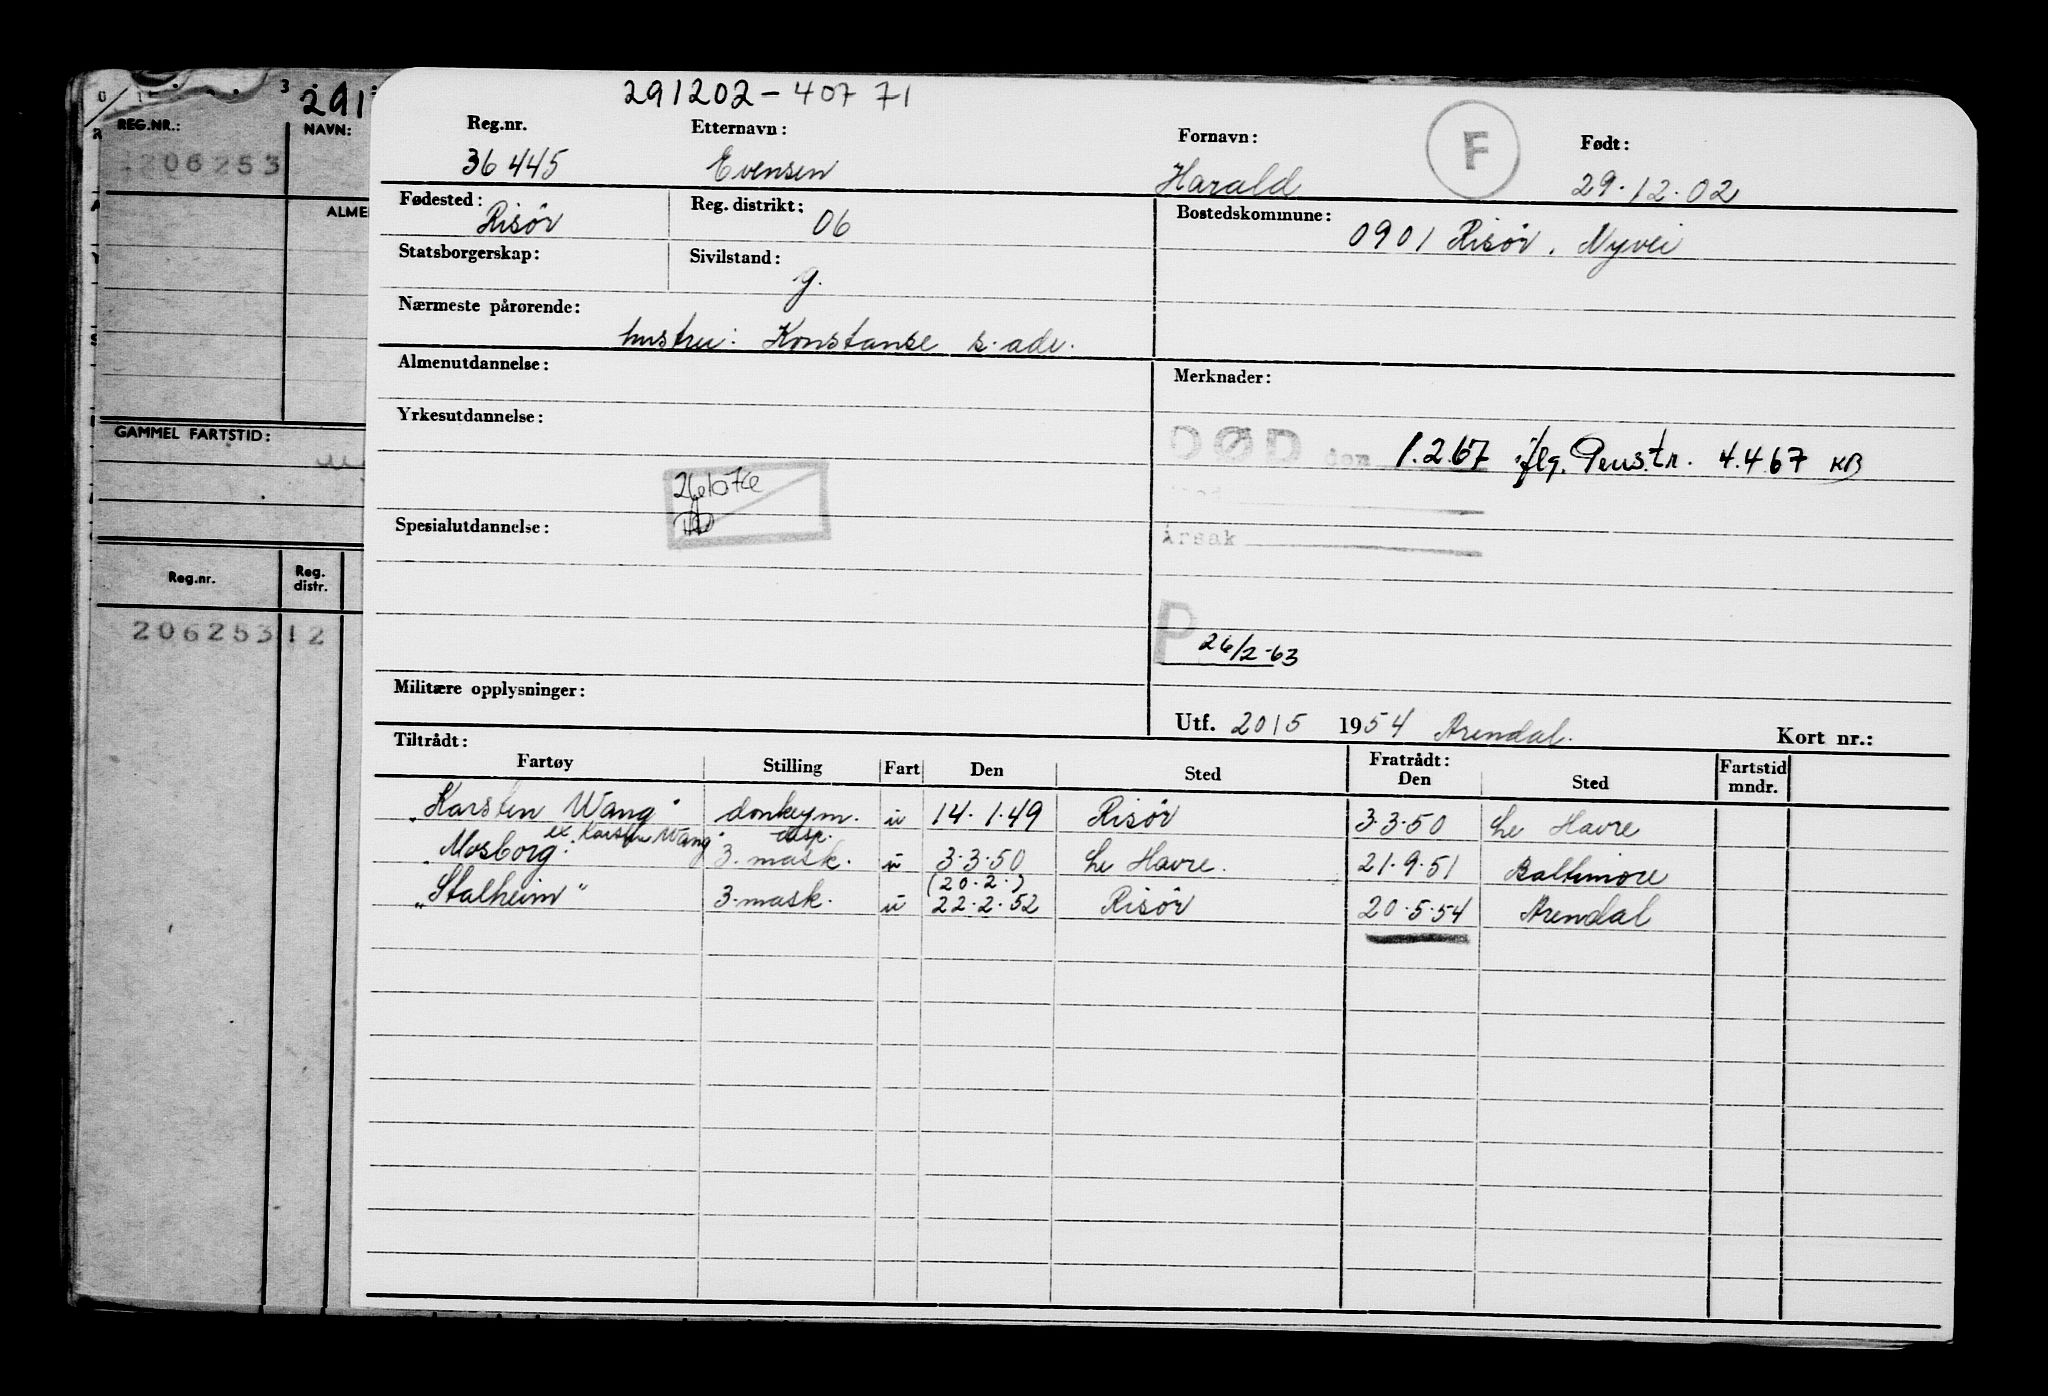 291202-40771
Reg.nr. Etternavn: Fornavn: F Født:
36445 Evensen Harald 29.12.02
Fødested: Risör Reg. distrikt: 06 Bostedskommune: 0901 Risör, Nyvei
Statsborgerskap: Sivilstand: g.
Nærmeste pårørende:
hustru: Konstanse s. adr.
Almenutdannelse: Merknader:
Yrkesutdannelse:
DØD den 1.2.67 iflg. Penstr. 4.4.67 KB
Spesialutdannelse:
Årsak
P 26/2-63
Militære opplysninger:
Utf. 20/5 1954 Arendal. Kort nr.:
Tiltrådt: Fratrådt:
Fartøy Stilling Fart Den Sted Den Sted Fartstid mndr.
"Karsten Wang" donkeym. u 14.1.49 Risör 3.3.50 Le Havre
ex Karsten Wang" disp.
"Mosborg 3. mask. u 3.3.50 Le Havre. 21.9.51 Baltimore
(20.2.)
"Stalheim" 3. mask. u 22.2.52 Risör 20.5.54 Arendal
3 291
REG.NR.: NAVN:
206253
ALME
GAMMEL FARTSTID:
Reg.nr. Reg. distr.
206253 12